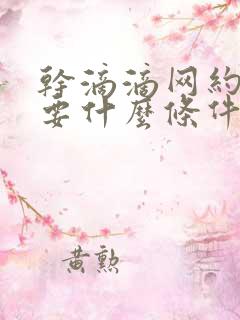 幹滴滴网約
要什麼條件
黄勲